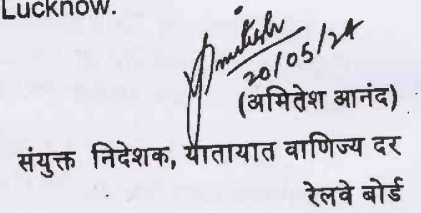 Lucknow.
Amitesh
20/05/24
(अमितेश आनंद)
संयुक्त निदेशक, यातायात वाणिज्य दर
रेलवे बोर्ड